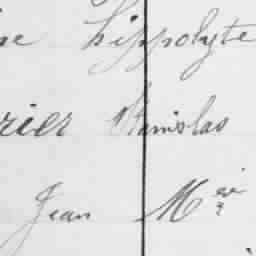 hippolyte
rier Stanislas
Jean M